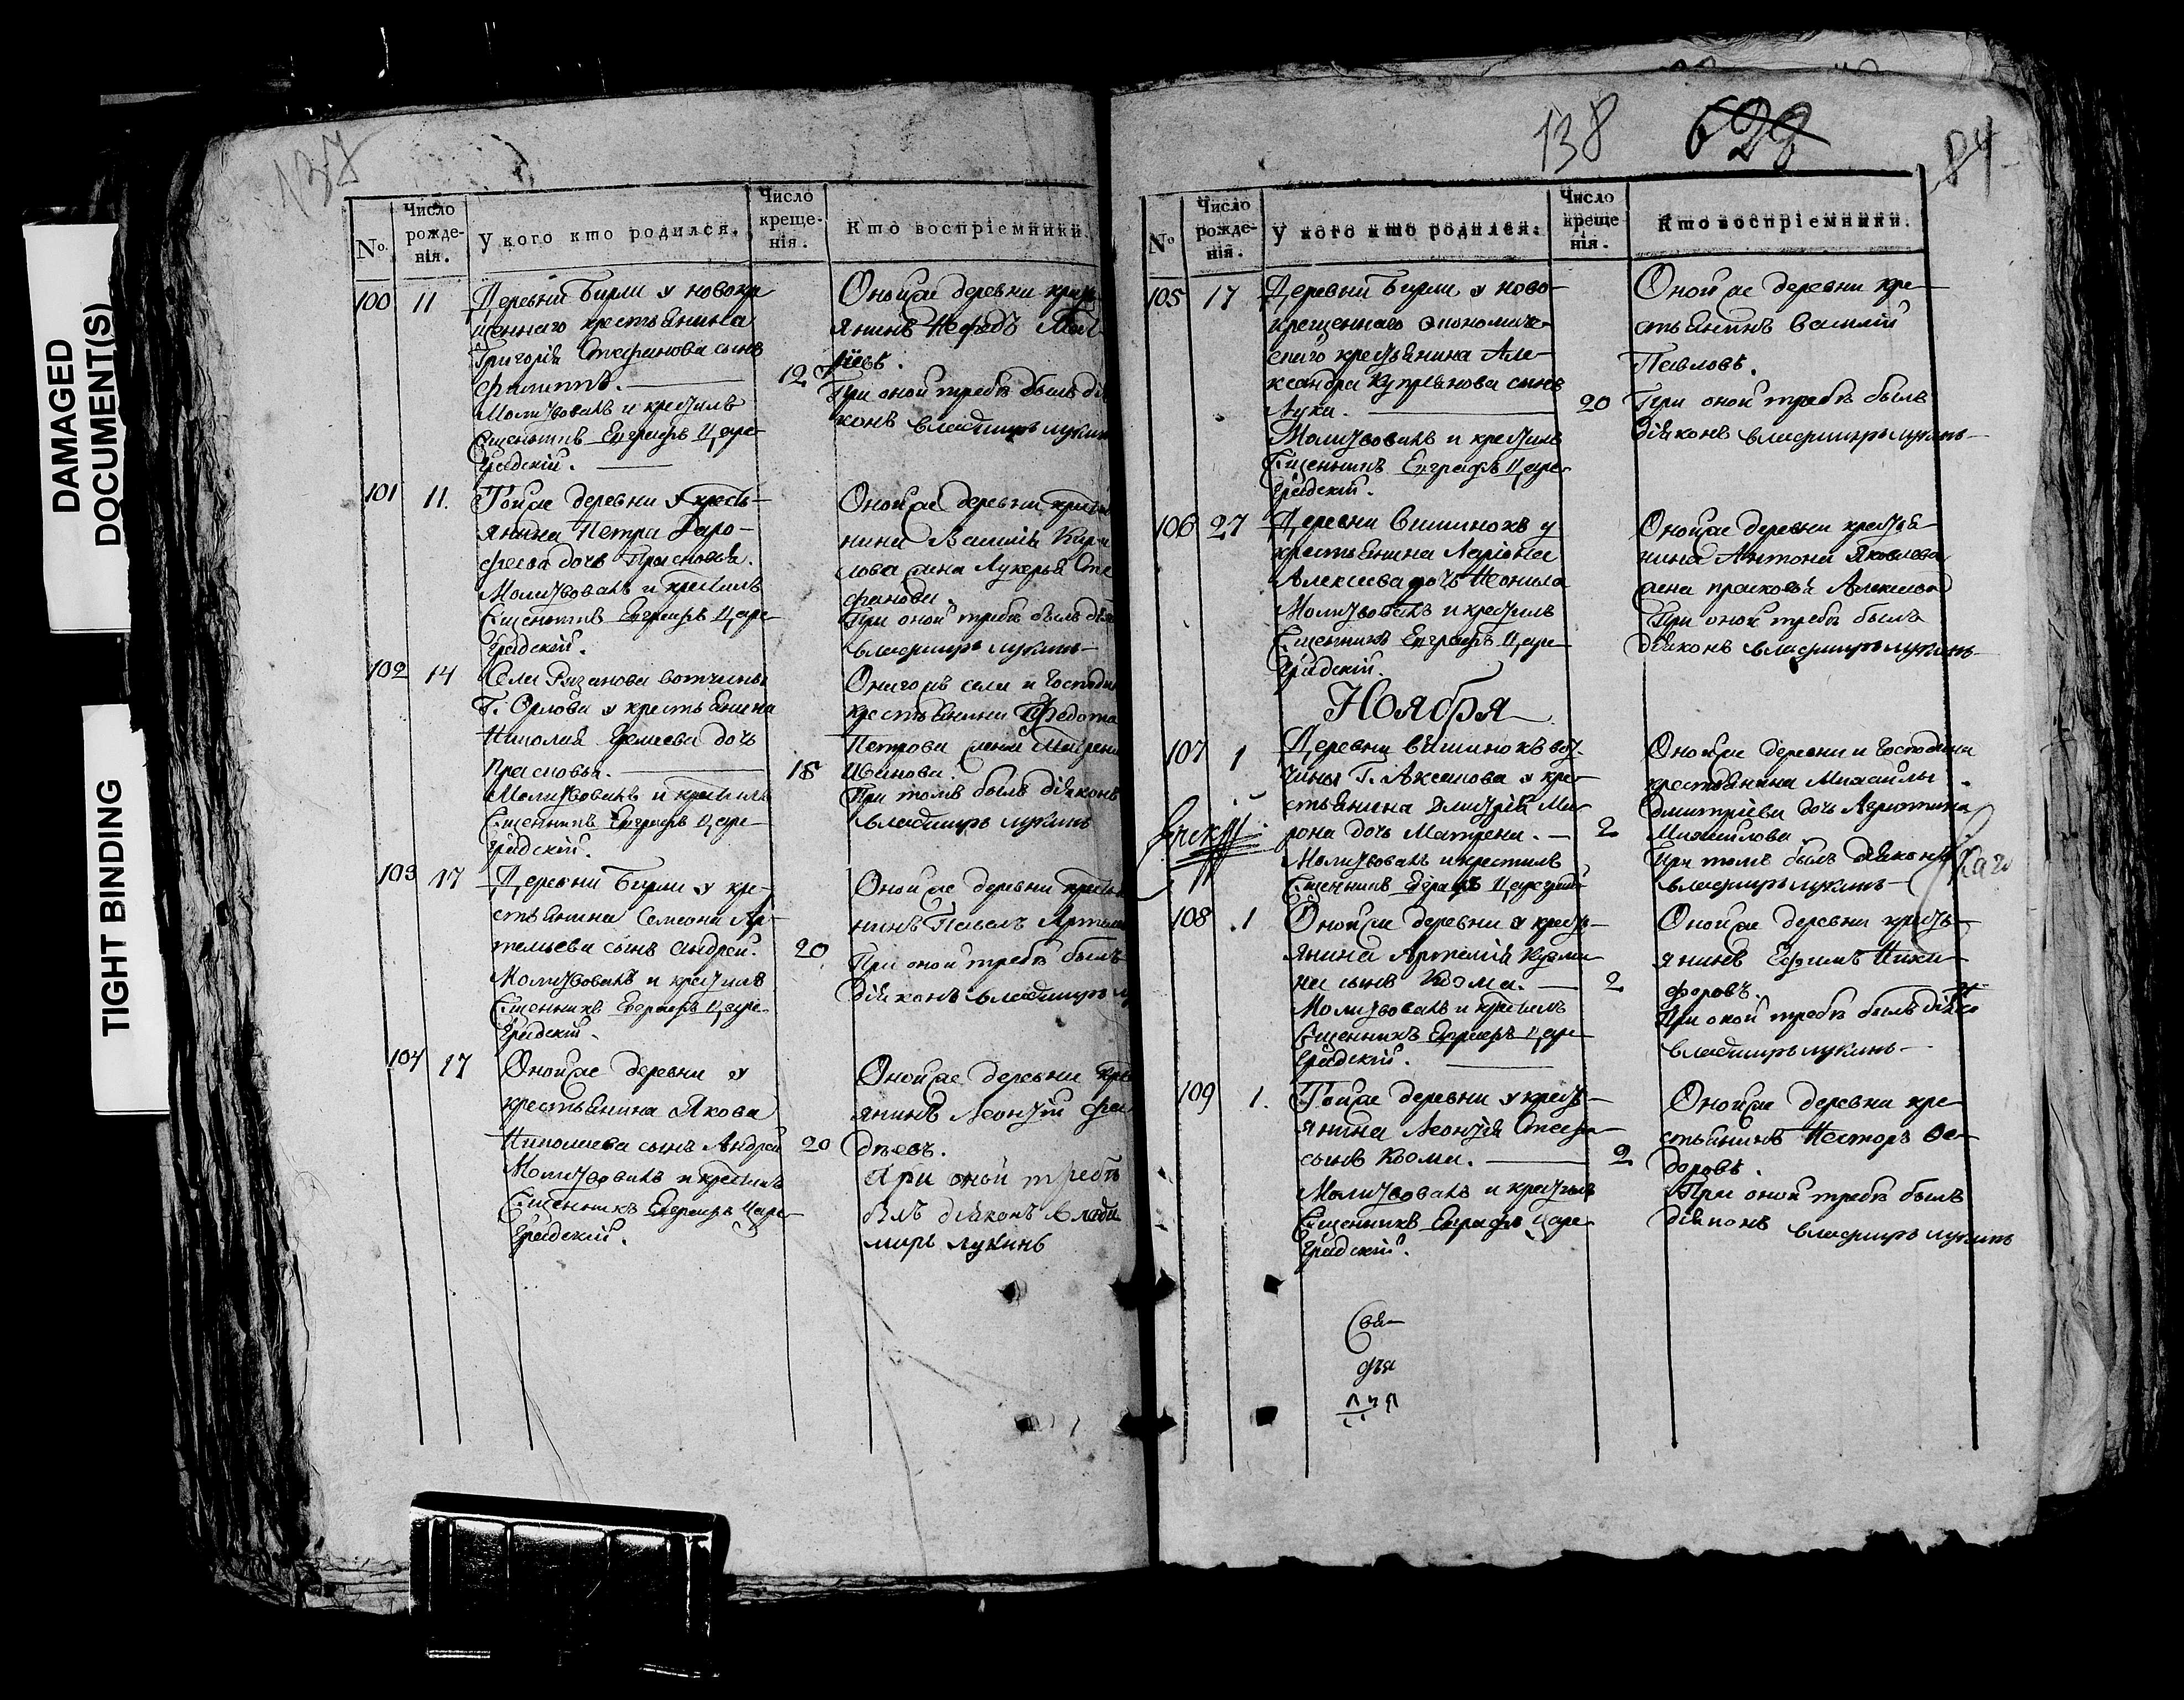 DAMAGED
DOCUMENT(S)
TIGHT BINDING
137
№. Число рожде-нія. У кого кто родился. Число креще-нія. Кто воспріемники.
100 11 Деревни Бирли у новокре
щеннаго крестьянина
Григорія Стефанова сынъ
Филиппъ. 12
Молитвовалъ и крестилъ
Сщенникъ Евграфъ Царе-
градскій.
Онойже деревни крестья
янинъ Нефедъ
При оной требѣ былъ дія
конъ Владимиръ Лукин
101 11. Тойже деревни у кресть-
янина Петра Доро-
феева дочь Прасковья.
Молитвовалъ и крестилъ
Сщенникъ Евграфъ Царе-
градскій.
Онойже деревни крестья
нина Василія Кири
лова жена Лукерья Сте
фанова.
При оной требѣ былъ дія
Владимиръ Лукинъ
102 14 Села Рязанова вотчины
Г. Орлова у крестьянина
Николая Еремеева дочь
Прасковья. 18
Молитвовалъ и крестилъ
Сщенникъ Евграфъ Царе-
градскій.
Оногожъ села и Господи
крестьянина Федота
Петрова жена Матрена
Иванова.
При томъ былъ діяконъ
Владимиръ Лукинъ
103 17 Деревни Бирли у кре-
стьянина Семеона Ар-
темьева сынъ Андрей. 20
Молитвовалъ и крестилъ
Сщенникъ Евграфъ Царе-
градскій.
Онойже деревни крестья
нинъ Павелъ Артем
При оной требѣ былъ
діяконъ Владимиръ Лу
104 17 Онойже деревни у
крестьянина Якова
Николаева сынъ Андрей 20
Молитвовалъ и крестилъ
Сщенникъ Евграфъ Царе-
градскій.
Онойже деревни кре
янинъ Леонтій Фа
дѣевъ.
При оной требѣ
былъ діяконъ Влади
миръ Лукинъ
138 628 84
№ Число рожде-нія. У кого кто родился. Число креще нія. Кто воспріемники.
105 17 Деревни Бирли у ново-
крещеннаго экономиче-
скаго крестьянина Але-
ксандра Купріянова сынъ
Лука. 20
Молитвовалъ и крестилъ
Сщенникъ Евграфъ Царе-
градскій.
Онойже деревни кре-
стьянинъ Василій
Павловъ.
При оной требѣ былъ
діяконъ Владимиръ Лукинъ
106 27 Деревни Вишинокъ у
крестьянина Ларіона
Алексеева дочь Неонила
Молитвовалъ и крестилъ
Сщенникъ Евграфъ Царе-
градскій.
Онойже деревни крестья-
нина Антона Яковлева
жена Прасковья Алексеева
При оной требѣ былъ
діяконъ Владимиръ Лукинъ
Ноября
107 1 Деревни Вишинокъ вот-
чины Г. Аксакова у кре-
стьянина Дмитрія Ми-
рона дочь Матрена. 2
Молитвовалъ и крестилъ
Сщенникъ Евграфъ Цареград
Онойже деревни и Господина
крестьянина Михайлы
Дмитріева дочь
Михайлова
При томъ былъ діяконъ
Владимиръ Лукинъ
108 1 Онойже деревни у кресть-
янина Артемія Кузми-
на сынъ Козма. 2
Молитвовалъ и крестилъ
Сщенникъ Евграфъ Царе-
градскій.
Онойже деревни кресть-
янинъ Ефимъ Ники-
форовъ.
При оной требѣ былъ діяко
Владимиръ Лукинъ
109 1. Тойже деревни у кресть-
янина Леонтія Стефа-
сынъ Козма. 2
Молитвовалъ и крестилъ
Сщенникъ Евграфъ Царе-
градскій.
Онойже деревни кре-
стьянинъ Несторъ Ѳе-
доровъ.
При оной требѣ былъ
діяконъ Владимиръ Лукинъ